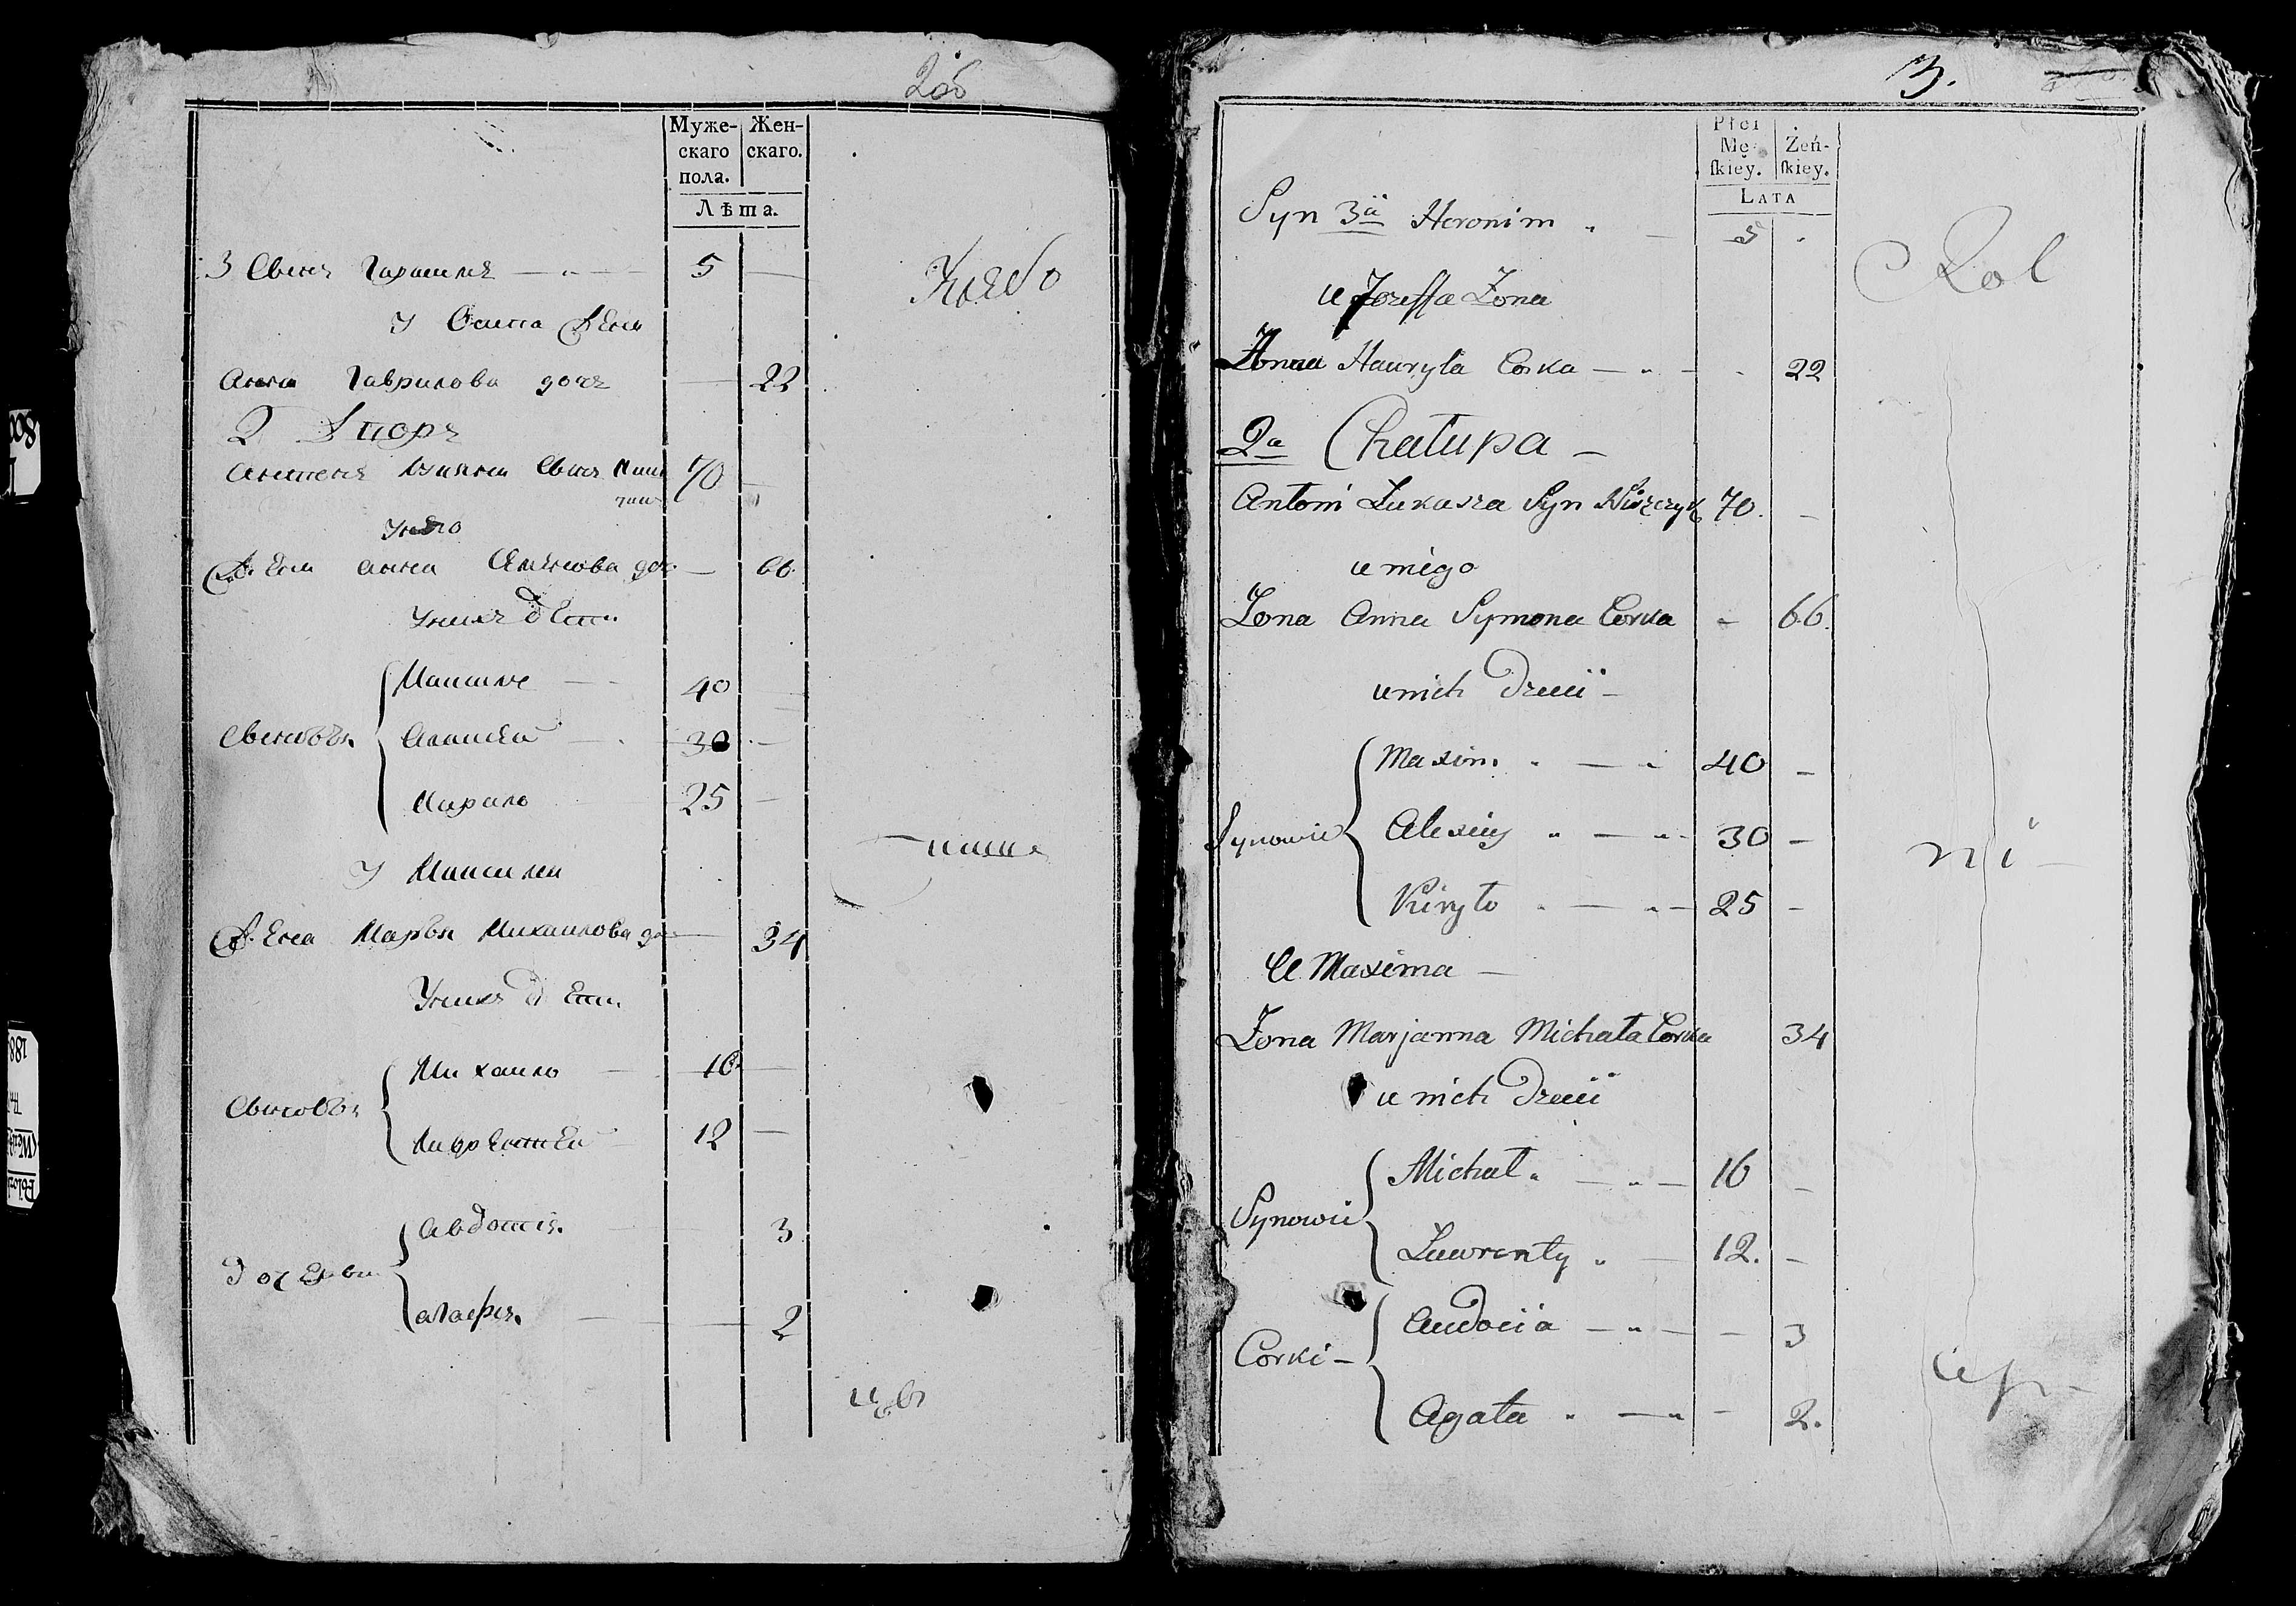 2об
Муже-
скаго
пола.
Жен-
скаго.
Лѣта.
3 Сынъ 5
Хлебо
У Осипа жена
Анна Гаврилова дочъ 22
2 Дворъ
70
У него
Жена Анна дочъ 66.
У нихъ дети
Сыновья
Максимъ 40
Алексей 30
Кирило 25
У Максима
паше
Жена Марья Михаилова до 34
У нихъ дети
Сыновья
Михаило 16
Лаврентей 12
Дочери
Авдотья 3
Агафья 2
цы
3.
Płci
Mę-
ſkiey.
Zeń-
ſkiey.
LATA
Syn 3ci Heronim 5
Rol
u Jozeffa Zona
Anna Hauryła Corka 22
2a Chałupa
Antoni Łukasza Syn 70.
u niego
Zona Anna Symona Corka 66.
u nich Dzieci
Synowie
Maxim 40
Alexiey 30
Kiryło 25
ni
U Maxima
Zona Marjanna Michała Corka 34
u nich Dzieci
Synowie
Michał 16
Lawrenty 12.
Corki
Audocia 3
Agata 2.
cy